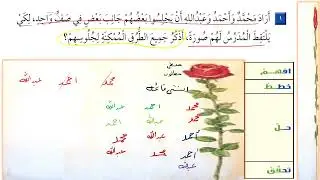 ١ أَرَادَ مُحَمَّدٌ وَأَحْمَدُ وَعَبْدُاللهِ أَنْ يَجْلِسُوا بَعْضُهُمْ جَانِبَ بَعْضٍ فِي صَفٍّ وَاحِدٍ، لِكَيْ
يَلْتَقِطَ الْمُدَرِّسُ لَهُمْ صُورَةً، أَذْكُرُ جَمِيعَ الطُّرُقِ الْمُمْكِنَةِ لِجُلُوسِهِمْ؟
افهم
محمد احمد عبدالله
خطط
انشئ قائمة
حل
محمد احمد عبدالله
محمد عبدالله احمد
احمد محمد عبدالله
احمد عبدالله محمد
عبدالله محمد احمد
عبدالله
تحقق